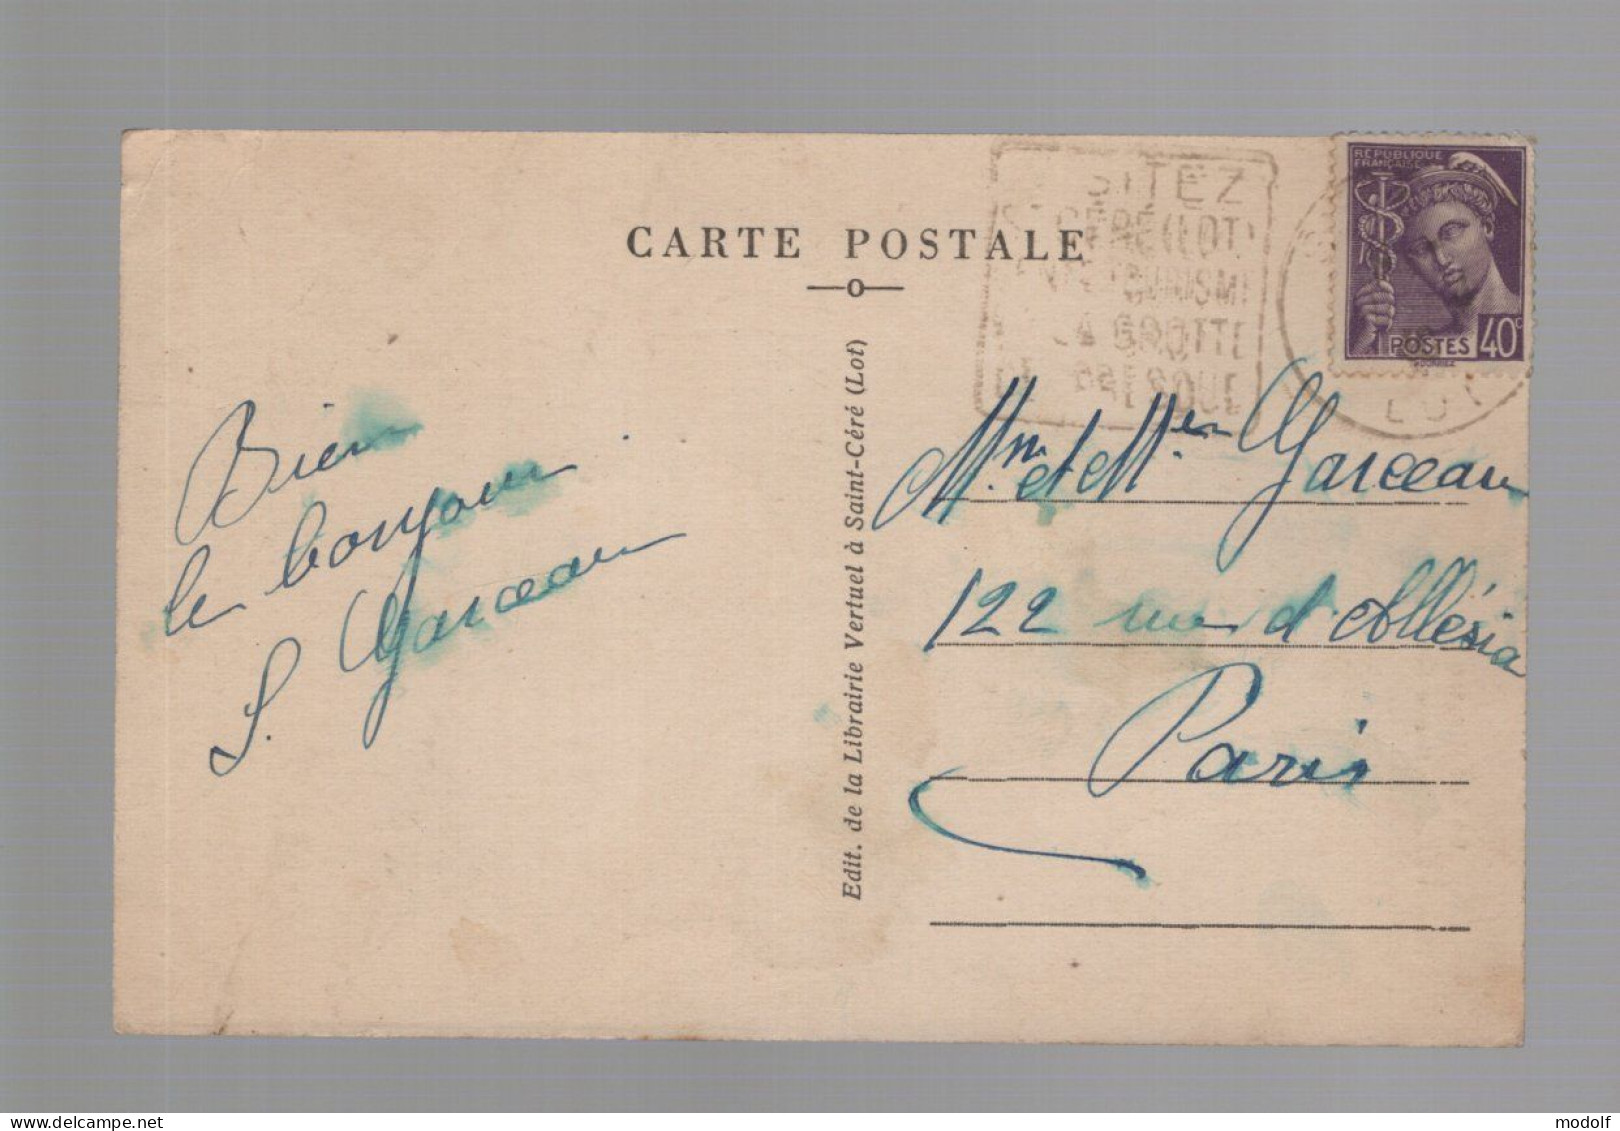 CARTE POSTALE
SITEZ
CÉRÉ (LOT)
TOURISME
GROTTE
PRESQUE
RÉPUBLIQUE
FRANÇAISE
POSTES 40c
LOT
Bien
le bonjour
S. Garceau
Edit. de la Librairie Vertuel à Saint-Céré (Lot)
Mr et Mme Garceau
122 rue d'Allésia
Paris
delcampe.net
modolf